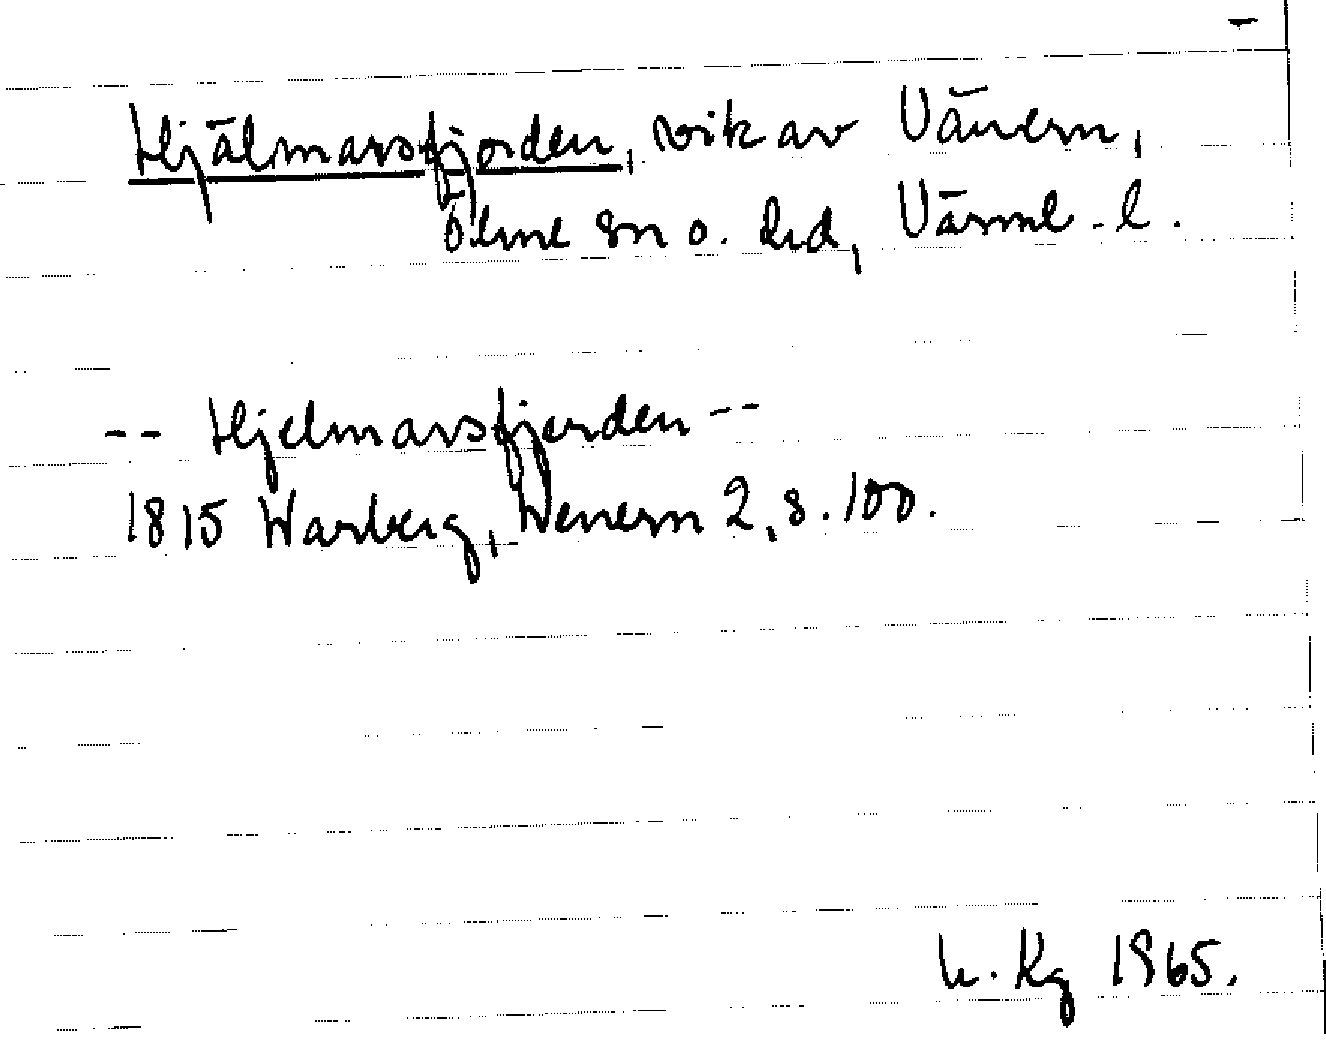 Hjälmarsfjorden, vik av Vänern,
Ölme sn o. hd, Värml. l.
-- Hjelmarsfjerden --
1815 Warberg, Wenern 2, s. 100.
Kg 1965.